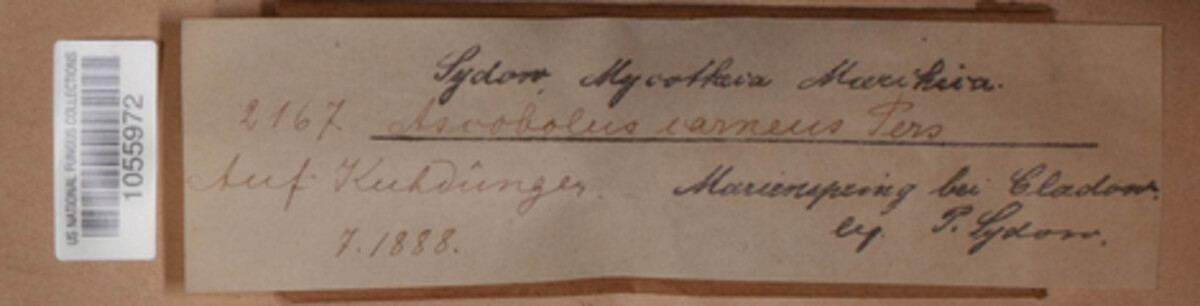 US NATIONAL FUNGUS COLLECTIONS
1055972
Sydow, Mycotheca Marchica.
2167 Ascobolus carneus Pers
Auf Kuhdünger. Marienspring bei Cladow.
7.1888. leg. P. Sydow.